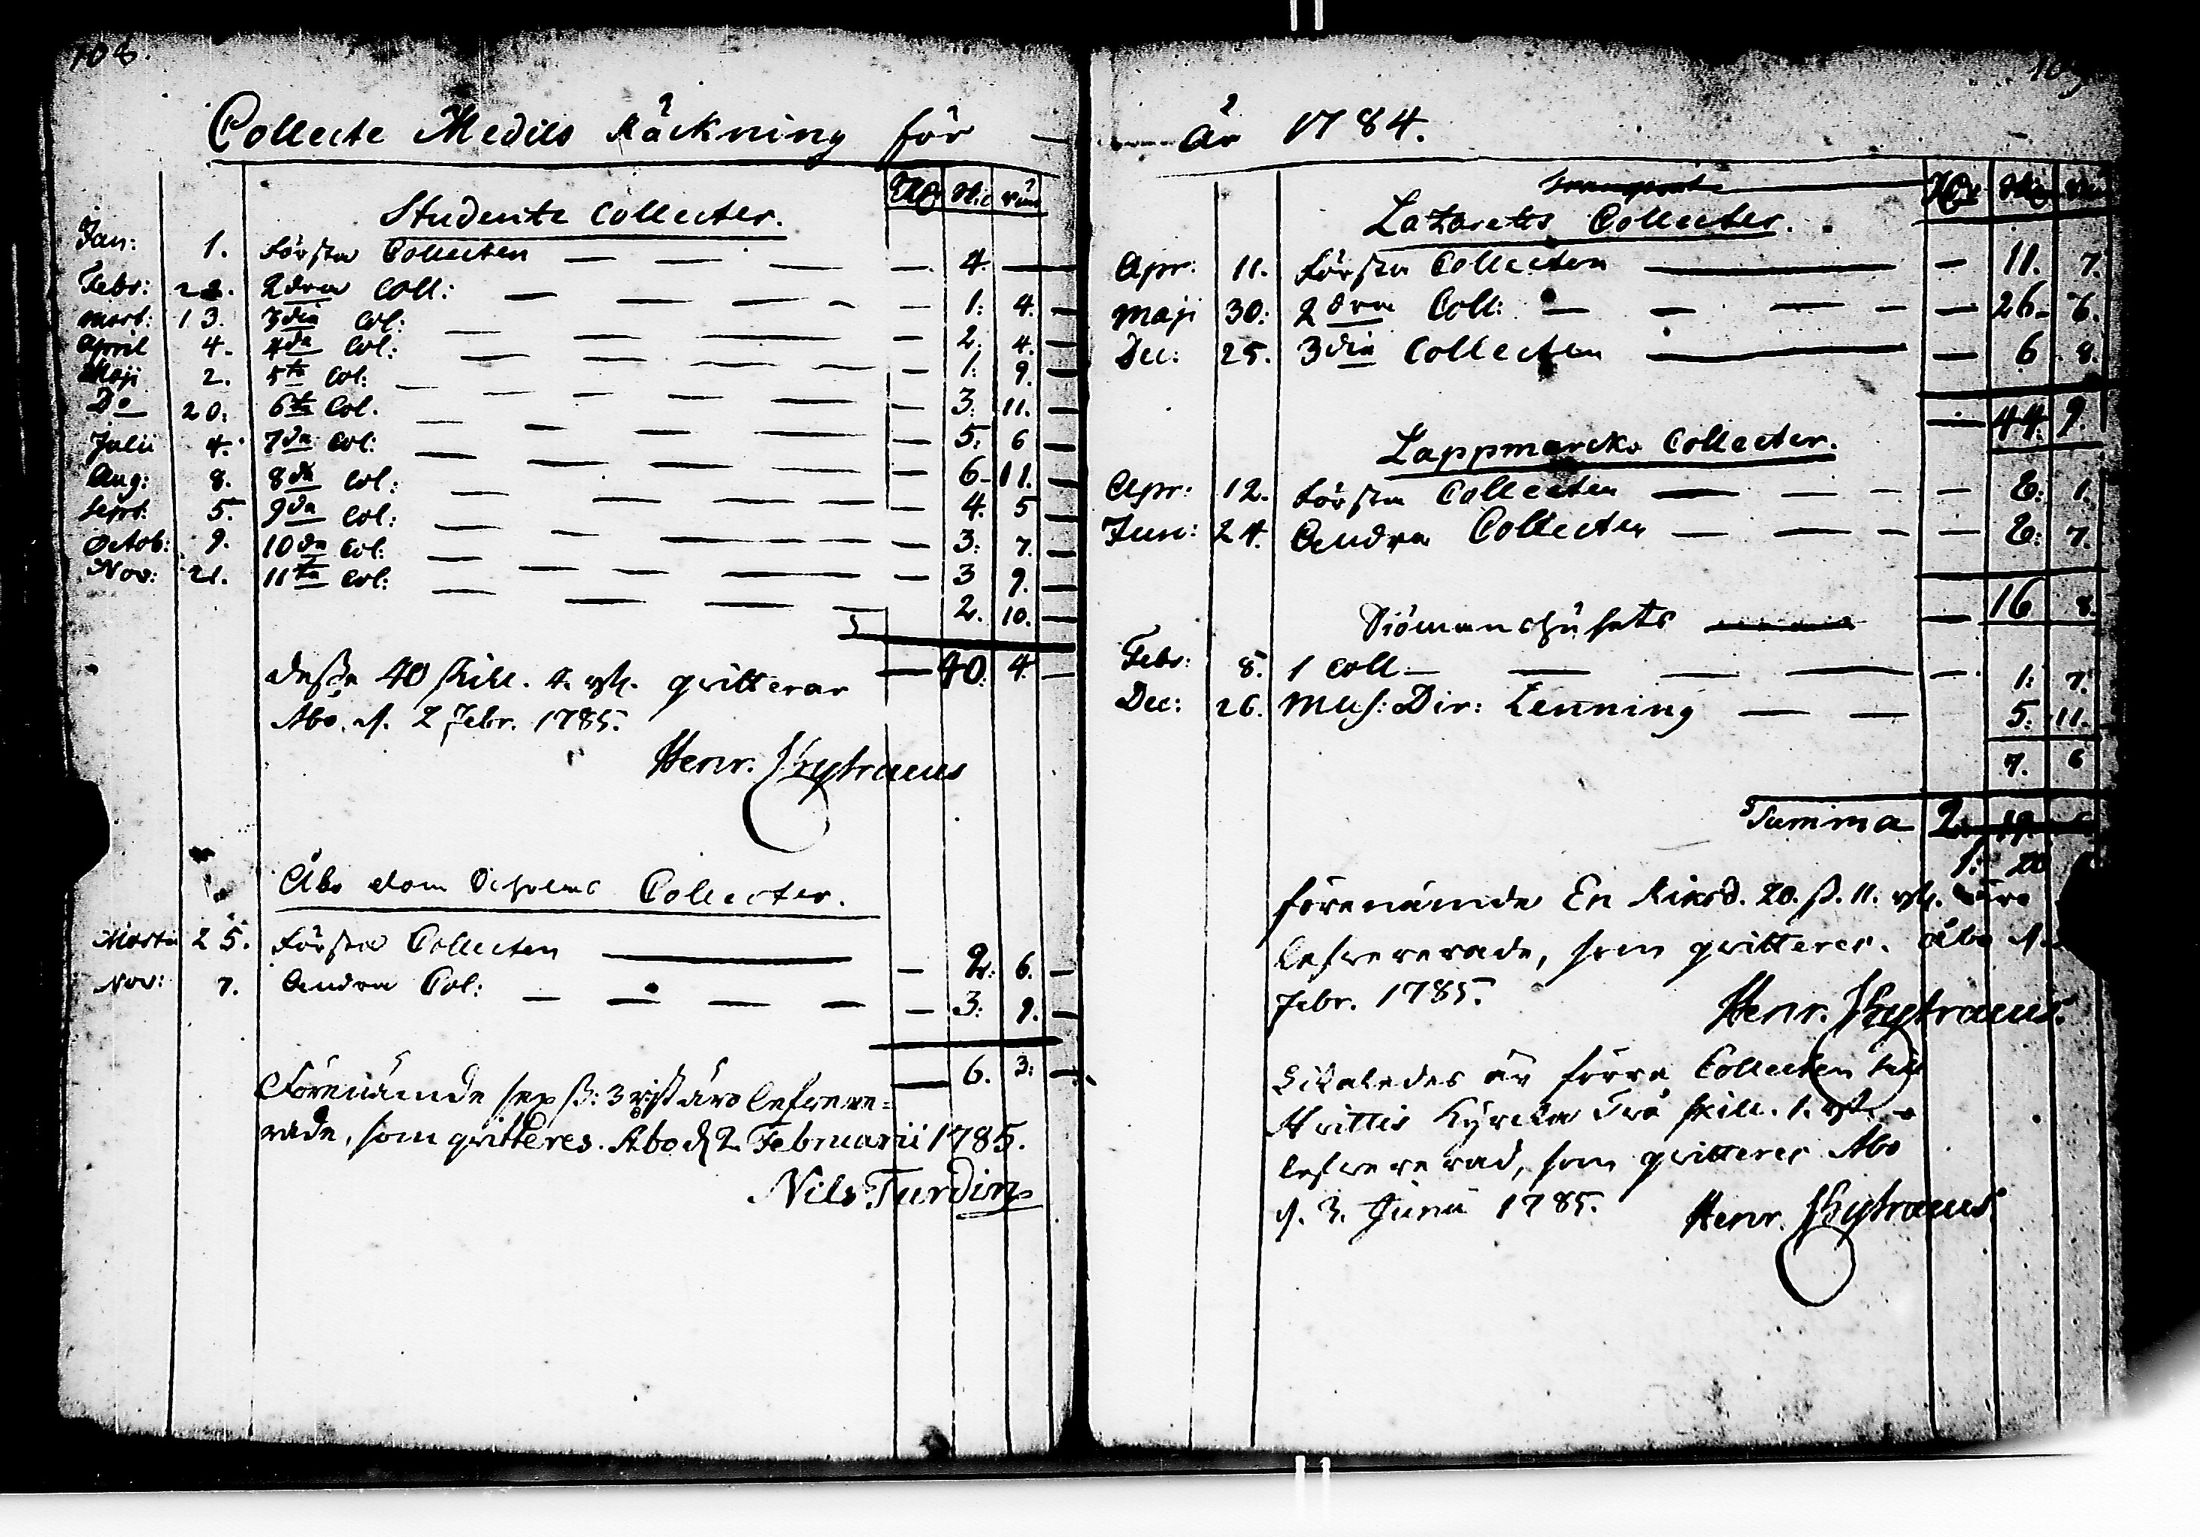 108.
Collecte Medels Räckning för
Rdr Skil. runst.
Studente Collecter.
Jan: 1. Första Collecten — — — 4. —
Febr: 22. 2dra Coll: — — — 1: 4. —
Mart: 13. 3dia Col: — — — 2. 4. —
April 4. 4da Col: — — — 1: 9. —
Maji 2. 5te Col: — — — 3. 11. —
Do 20. 6te Col. — — — 5. 6 —
Julii 4. 7da Col: — — — 6. 11. —
Aug: 8. 8da Col: — — — 4. 5 —
Sept: 5. 9da Col: — — — 3: 7. —
Octob: 9. 10da Col: — — — 3 9. —
Nov: 21. 11ta Col: — — — 2. 10. —
— 40. 4. —
desse 40 skill. 4. rst. qvitterar
Åbo. d. 2 Febr. 1785.
Henr. Skytraeus
Åbo Dom Scholas Collecter.
Martii 25. Första Collecten — — 2. 6. —
Nov: 7. Andra Col: — — — 3. 9. —
— 6. 3: —
Förenämde sex ß: 3 rst äro lefrere=
rade, som qvitteres. Åbo d 2 Februarii 1785.
Nils Turdin
109
År 1784.
Transport
Rdr Skil. runst
Lazaretts Collecter.
Apr: 11. Första Collecten — — 11. 7.
Maji 30: 2dra Coll: — — — 26. 6.
Dec: 25. 3dia Collecten — — 6 8.
— 44. 9.
Lappmarcks Collecter.
Apr: 12. Första Collecten — — 8: 1.
Jun: 24. Andra Collecten — — 8: 7.
— 16 8.
Siömanshusets
Febr: 8. 1 Coll — — — 1: 7.
Dec: 26. Mus: Dir: Lenning — — 5: 11.
7. 6
Summa 2. 19.
1: 20
förenämde En Riksd. 20. ß. 11. rst. äro
lefrererade, som qvitteres. Åbo d.
Febr. 1785.
Henr. Skytraeus.
Likaledes är förra Collecten till
Hvittis Kyrcka Två skill. 1. rst.
lefrererad, som qvitteres Åbo
d. 3. Junii 1785. Henr. Skytraeus